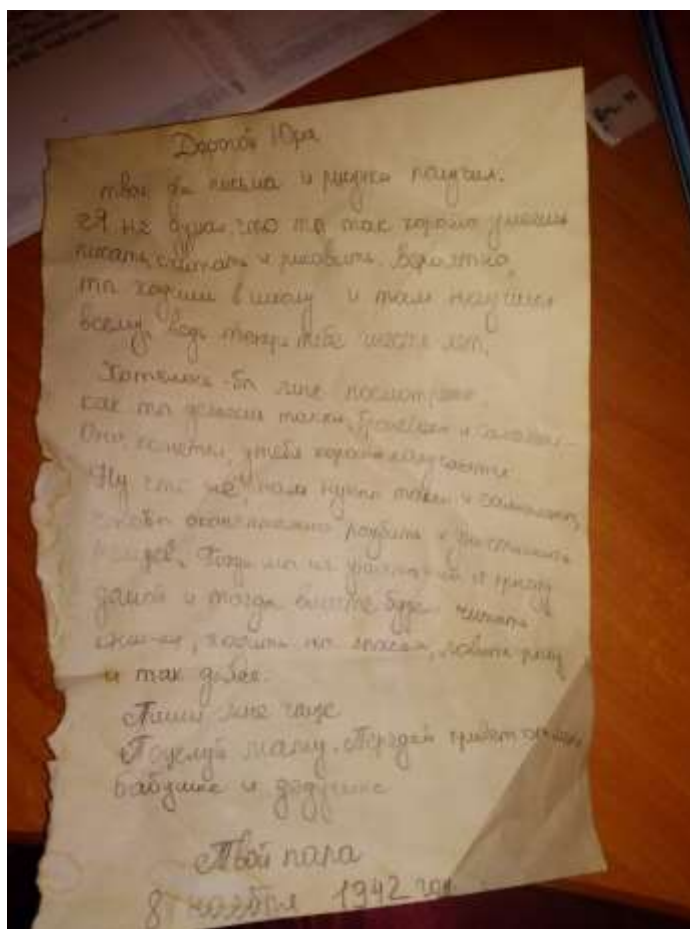 Дорогой Юра
твои два письма и рисунки получил.
Я не думал, что ты так хорошо умеешь
писать, считать и рисовать. Вероятно,
ты ходишь в школу и там научился
всему, ведь теперь тебе шесть лет.
Хотелось бы мне посмотреть,
как ты делаешь танки, броневики и самолёты.
Они, конечно, у тебя хорошо получаются
Ну что же, нам нужны танки и самолёты,
чтобы окончательно разбить и
Тогда мы их и приеду
домой и тогда вместе будем читать
книжки, ходить на , ловить рыбу
и так далее.
Пиши мне чаще
Поцелуй маму. Передай привет
бабушке и дедушке
Твой папа
8 ноября 1942 год